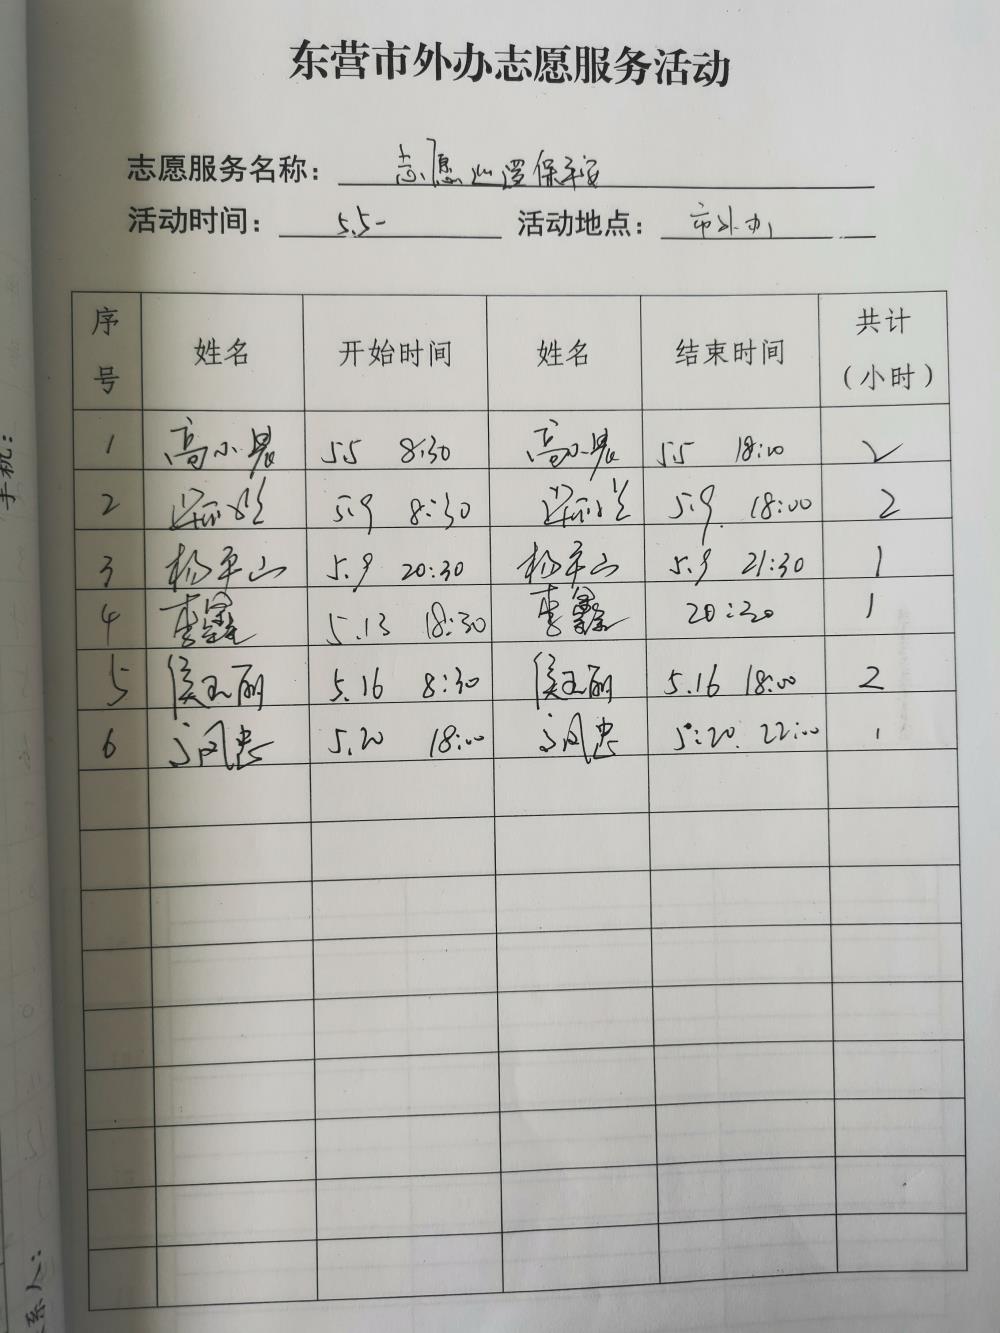 东营市外办志愿服务活动
志愿服务名称： 志愿巡逻保平安
活动时间： 5.5- 活动地点： 市外办
序号 姓名 开始时间 姓名 结束时间 共计（小时）
1 高小晨 5.5 8:30 高小晨 5.5 18:00 2
2 5.9 8:30 5.9. 18:00 2
3 杨平山 5.9 20:30 杨平山 5.9 21:30 1
4 李鑫 5.13 18:30 李鑫 20:30 1
5 侯玉丽 5.16 8:30 侯玉丽 5.16 18:00 2
6 5.20 18:00 5:20. 22:00 1
手机：
系人：